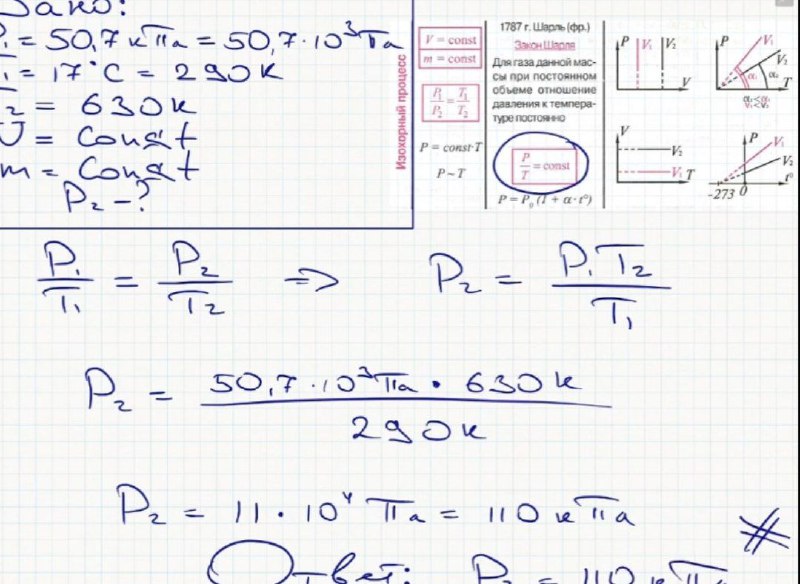 Дано:
P₁ = 50,7 кПа = 50,7·10³ Па
T₁ = 17°C = 290К
T₂ = 630К
V = Const
m = Const
P₂ - ?
Изохорный процесс
V = const
m = const
P₁/P₂ = T₁/T₂
P = const·T
P ~ T
1787 г. Шарль (фр.)
Закон Шарля
Для газа данной мас-
сы при постоянном
объеме отношение
давления к темпера-
туре постоянно
P/T = const
P = P₀ (1 + α·t°)
P V₁ V₂ V
P V₁ V₂ α₁ α₂ T
α₂<α₁
V₁<V₂
V V₂ V₁ T
P V₁ V₂ t° -273 0
P₁/T₁ = P₂/T₂ => P₂ = P₁T₂/T₁
P₂ = 50,7·10³Па · 630К / 290К
P₂ = 11·10⁴ Па = 110 кПа
Ответ: P₂ = 110 кПа